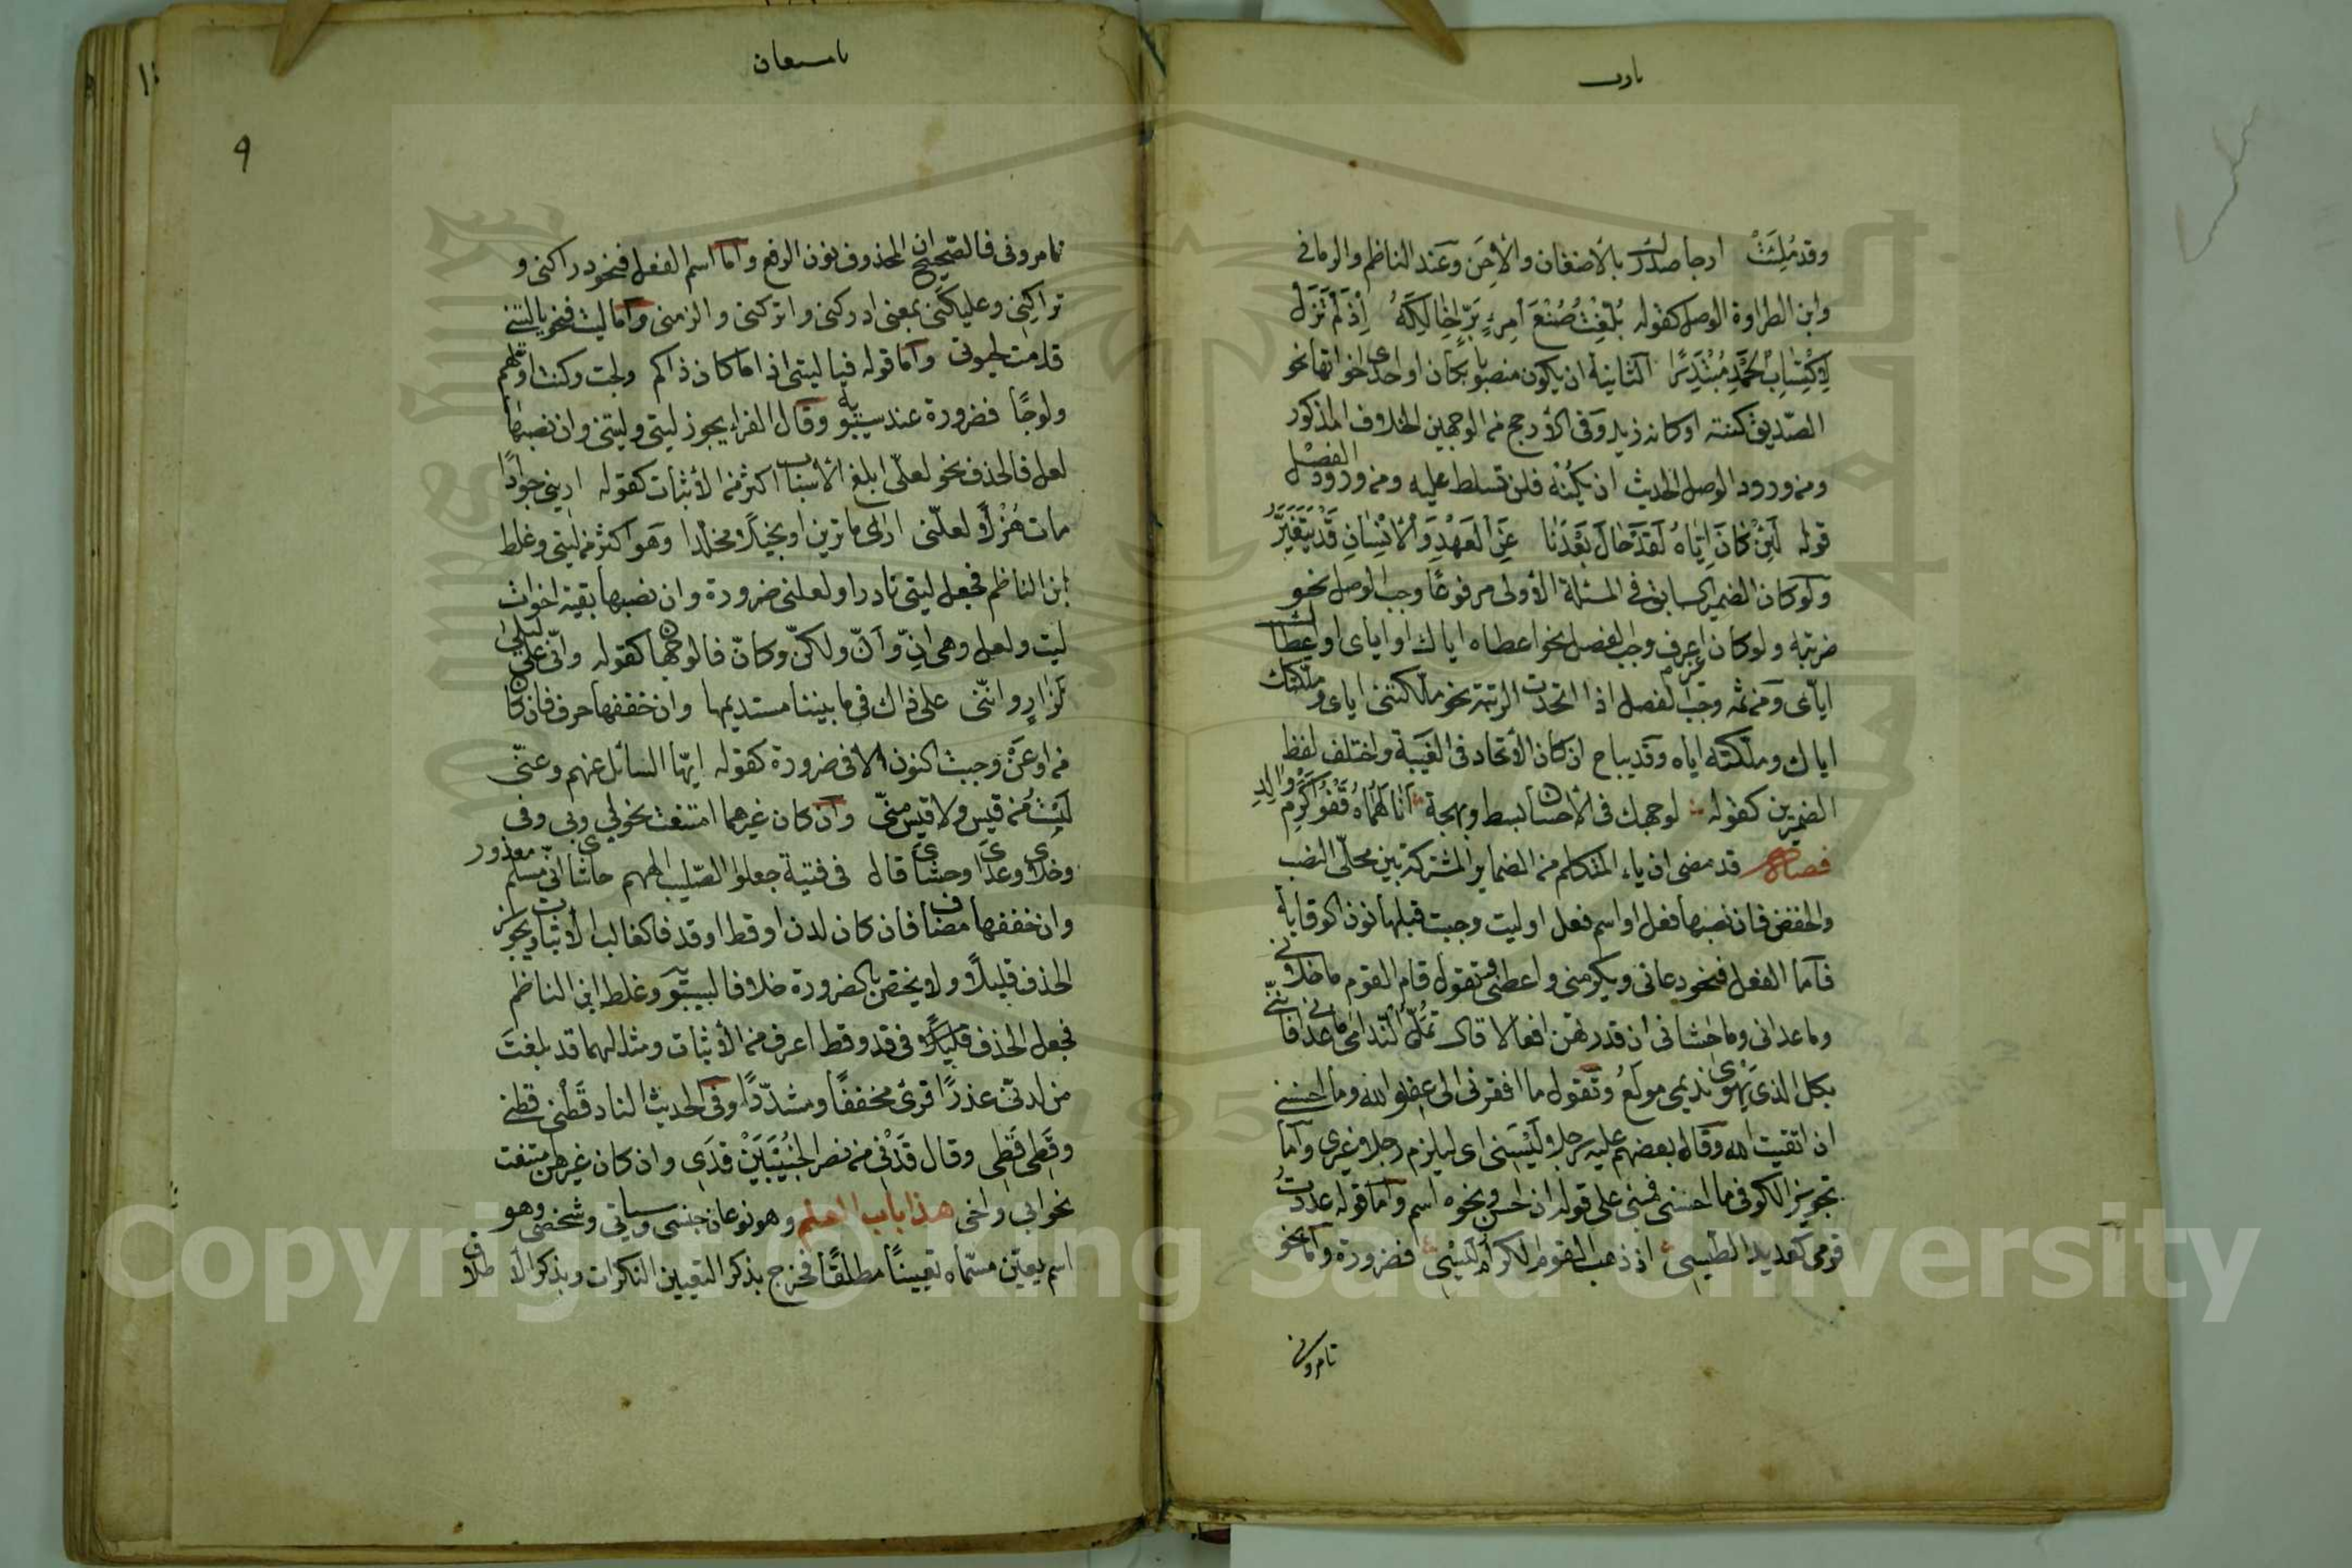 وقد مُلِئَتْ ارجاء صدرك بالأضغان والأِحَن وعند الناظم والرماني
وابن الطراوة الوصل كقوله بُلِّغْتُ صُنْعَ امرِءٍ بَرٍّ إخالُكَهُ إذ لم تَزَل
لاكتساب الحمد مبتدرا الثانية ان يكون منصوبا بكان او احدى اخواتها نحو
الصّديق كنته او كانه زيد وفي الأرجح من الوجهين الخلاف المذكور
ومن ورود الوصل الحديث ان يكنه فلن تسلط عليه ومن ورود الفصل
قوله لَئِن كان اِيّاه لقد حال بعدنا عن العهد والأنسان قد يتغيّر
ولو كان الضمير السابق في المسئلة الأولى مرفوعًا وجب الوصل نحو
ضربته ولو كان غير اعرف وجب الفصل نحو اعطاه اياك او اياى او اعطاك
ايّاى ومن ثم وجب الفصل اذا اتحدت الرتبة نحو ملّكتنى اياى وملّكتك
اياك وملّكته اياه وقد يباح ان كان الأتحاد في الغيبة واختلف لفظ
الضميرين كقوله لوجهك في الأحسان بسط وبهجة أنالهماه قفو اكرم والد
فصل قد مضى ان ياء المتكلم من الضماير المشتركة بين محلّى النصب
والخفض فان نصبها فعل او اسم فعل او ليت وجبت قبلها نون الوقاية
فأما الفعل فنحو دعانى ويكرمنى واعطنى وتقول قام القوم ما خلانى
وما عدانى وما حاشانى ان قدرتهن افعالا قال تُمَلّ الندامى ما عدانى فاننى
بكل الذى يهوى نديمى مولع وتقول ما افقرنى الى عفو الله وما احسننى
ان اتقيت الله وقال بعضهم عليه رجلا ليسنى اى ليلزم رجلا غيرى وأما
تجويز الكوفى ما احسنى فمبنى على قوله ان احسن ونحوه اسم وأما قوله عددت
قومى كعديد الطيس اذ ذهب القوم الكرام ليسى فضرورة وأما نحو
تامرونى
٩
تامرونى فالصحيح ان المحذوف نون الرفع وأما اسم الفعل فنحو دراكنى و
تراكنى وعليكنى بمعنى ادركنى واتركنى والزمنى وأما ليت فنحو يا ليتنى
قدمت لحيوتى وأما قوله فيا ليتى اذا ما كان ذاكم ولجت وكنت اولهم
ولوجًا فضرورة عند سيبويه وقال الفراء يجوز ليتى وليتنى وان نصبها
لعل فالحذف نحو لعلّى ابلغ الأسباب اكثر من الأثبات كقوله ارينى جوادًا
مات هُزْلاً لعلّنى ارى ما ترين او بخيلًا مخلدا وهو اكثر من ليتى وغلط
ابن الناظم فجعل ليتى نادرا ولعلنى ضرورة وان نصبها بقية اخوات
ليت ولعل وهى انّ وأنّ ولكنّ وكأنّ فالوجهان كقوله وانّى على ليلى
لزارٍ وانّنى على ذاك فى ما بيننا مستديمها وان خفضها حرف فان كان
من او عن وجبت النون الا فى ضرورة كقوله ايّها السائل عنهم وعنى
لستُ من قيس ولا قيس منى وان كان غيرهما امتنعت نحو لى وبى وفى
وخلاى وعداى وحشاى قال فى فتية جعلوا الصّليب الههم حاشاى انى مسلم معذور
وان خفضها مضاف فان كان لدن او قط او قد فالغالب الأثبات ويجوز
الحذف قليلاً ولا يختص بالضرورة خلافا لسيبويه وغلط ابن الناظم
فجعل الحذف قليلًا وفى قد وقط اعرف من الأثبات ومثالهما قد بلغت
من لدنّى عذرًا قرئ مخففًا ومشدّدًا وفى الحديث النار قَطْنى قطنى
وقَطِى قَطِى وقال قَدْنى من نصر الخُبَيْبَيْن قدى وان كان غيرهن امتنعت
نحو ابى واخى هذا باب العلم وهو نوعان جنسى وسياتى وشخصى وهو
اسم يعيّن مسمّاه تعيينًا مطلقًا فخرج بذكر التعيين النكرات وبذكر الأطلاق
Copyright © King Saud University
1957